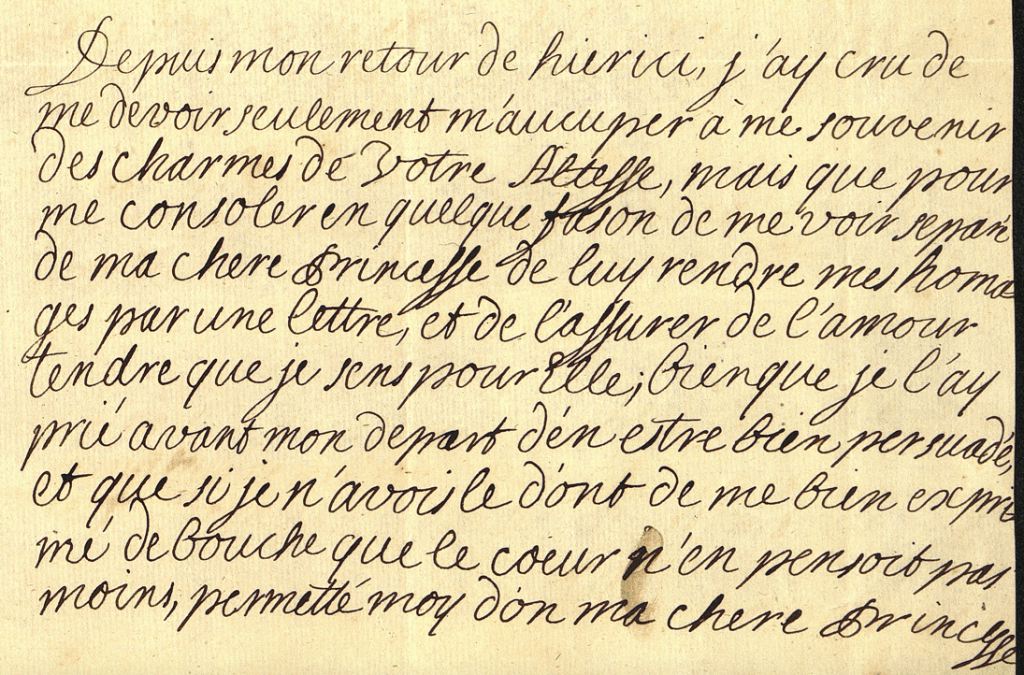 Depuis mon retour de hier ici, j'ay cru de
me devoir seulement m'aucuper à me souvenir
des charmes de Votre Altesse, mais que pour
me consoler en quelque fason de me voir separé
de ma chere Princesse de luy rendre mes homa
ges par une lettre, et de l'assurer de l'amour
tendre que je sens pour Elle; bien que je l'ay
prié avant mon depart d'én estre bien persuadé,
et que si je n'avois le dont de me bien expri
mé de bouche que le coeur n'en pensoit pas
moins, permetté moy don ma chere Princesse